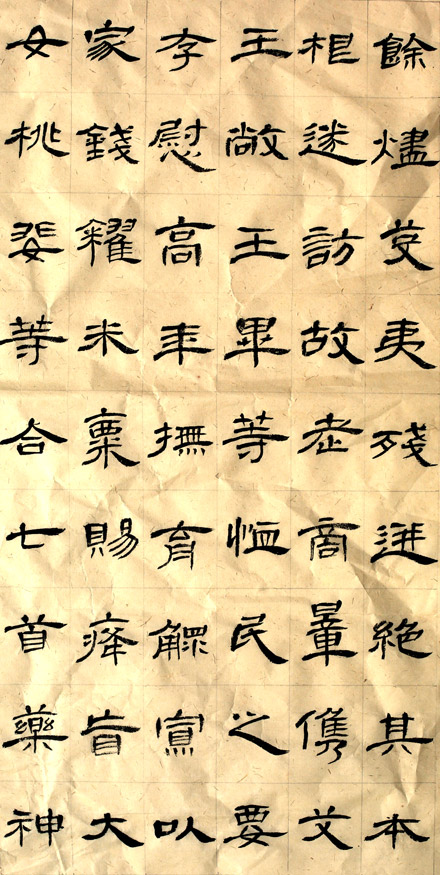 餘燼芟夷殘迸絕其本
根遂訪故老商量儁艾
王敞王畢等恤民之要
存慰高年撫育鰥寡以
家錢糴米粟賜癃盲大
女桃婓等合七首藥神